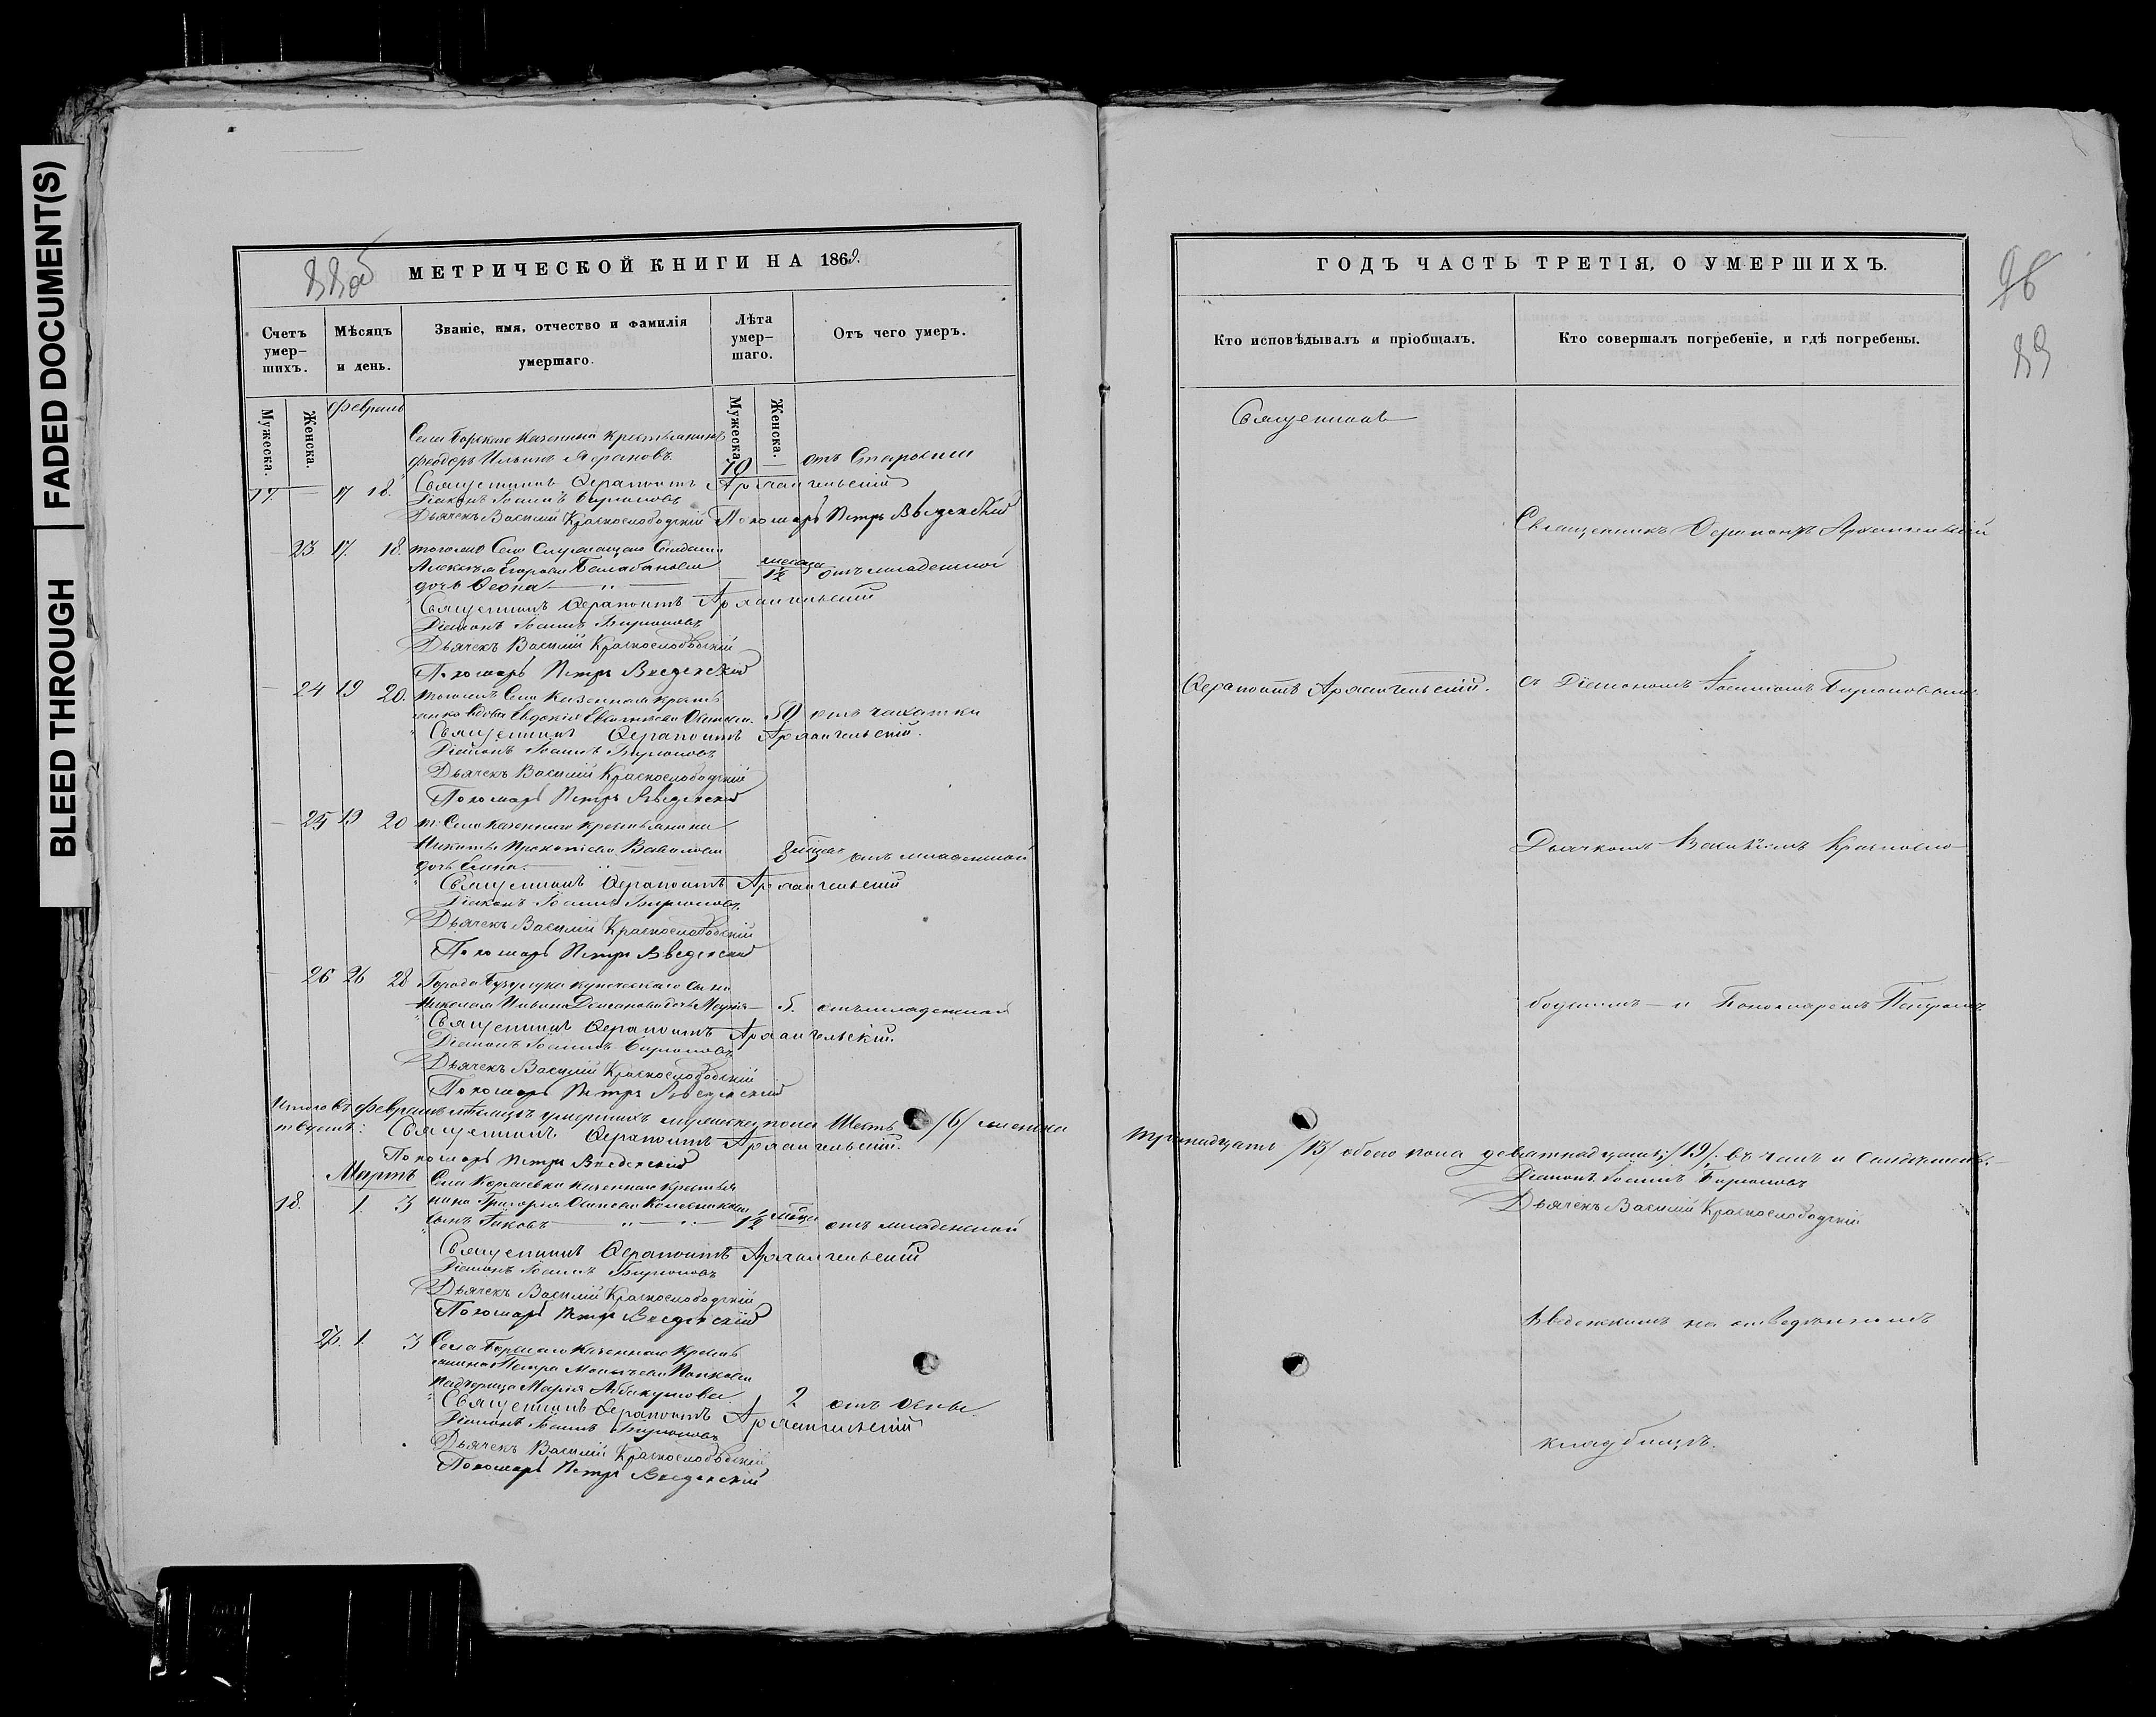 BLEED THROUGH
FADED DOCUMENT(S)
88 об
МЕТРИЧЕСКОЙ КНИГИ НА 1869.
Счетъ умер-
шихъ.
Мѣсяцъ
и день.
Званіе, имя, отчество и фамилія
умершаго.
Лѣта
умер-
шаго.
Отъ чего умеръ.
Мужеска.
Женска.
Февраль
Мужеска.
Женска.
Села Борскаго казенный крестьянинъ
Феодоръ Ильинъ 70 — отъ старости
17. — 17 18. Священникъ Ферапонтъ Архангельскій
Діаконъ Іоаннъ Бирюковъ
Дьячекъ Василій Краснослободскій Пономарь Петръ Введенскій
— 23 17. 18. тогоже села
Егорова Балабанова месяца 1½ отъ младенской
дочь
Священникъ Ферапонтъ Архангельскій
Діаконъ Іоаннъ Бирюковъ
Дьячекъ Василій Краснослободскій
Пономарь Петръ Введенскій
— 24 19 20. тогоже села казеннаго крестья
вдова Евдокія 50 отъ чахотки
Священникъ Ферапонтъ Архангельскій.
Діаконъ Іоаннъ Бирюковъ
Дьячекъ Василій Краснослободскій
Пономарь Петръ Введенскій
— 25 19 20 т. села казеннаго крестьянина
Никиты Прокопіева Вавилова отъ младенской
дочь Елена.
Священникъ Ферапонтъ Архангельскій
Діаконъ Іоаннъ Бирюковъ
Дьячекъ Василій Краснослободскій
Пономарь Петръ Введенскій
— 26 26 28 Города Бузулука купеческаго сына
Николая дочь Марія — 5. отъ младенской
Священникъ Ферапонтъ Архангельскій.
Діаконъ Іоаннъ Бирюковъ
Дьячекъ Василій Краснослободскій
Пономарь Петръ Введенскій
Итого въ Февралѣ мѣсяцѣ умершихъ мужеска пола Шесть /6/ женска
Священникъ Ферапонтъ Архангельскій.
Пономарь Петръ Введенскій
Мартъ
Села казеннаго крестья
18. 1. 3 нина Григорія Осипова Колесникова
сынъ Іаковъ 1½ мѣсяца отъ младенской
Священникъ Ферапонтъ Архангельскій
Діаконъ Іоаннъ Бирюковъ
Дьячекъ Василій Краснослободскій
Пономарь Петръ Введенскій
1. 3 Села Борскаго казеннаго крестья
янина Петра Попкова
падчерица Марія Аббакумова 2 отъ оспы.
Священникъ Ферапонтъ Архангельскій
Діаконъ Іоаннъ Бирюковъ
Дьячекъ Василій Краснослободскій
Пономарь Петръ Введенскій
ГОДЪ ЧАСТЬ ТРЕТІЯ, О УМЕРШИХЪ.
89
Кто исповѣдывалъ и пріобщалъ.
Кто совершалъ погребеніе, и гдѣ погребены.
Священникъ
Священникъ Ферапонтъ Архангельскій
Ферапонтъ Архангельскій.
съ Діакономъ Іоанномъ Бирюковымъ
Дьячкомъ Василіемъ Красносло-
бодскимъ — и Пономаремъ Петромъ
тринадцать /13/ обоего пола девятнадцать /19/
Діаконъ Іоаннъ Бирюковъ
Дьячекъ Василій Краснослободскій
Введенскимъ на отведенномъ
кладбищѣ.